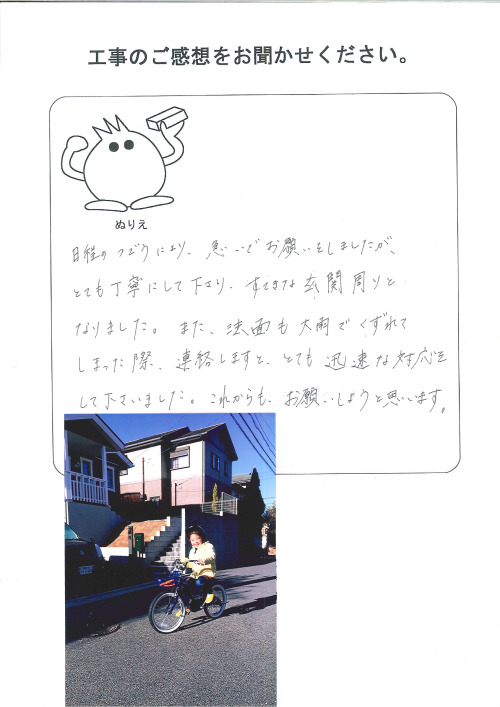 工事のご感想をお聞かせください。
ぬりえ
日程のつごうにより、急いでお願いをしましたが、
とても丁寧にして下さり、すてきな玄関周りと
なりました。また、法面も大雨でくずれて
しまった際、連絡しますと、とても迅速な対応を
して下さいました。これからも、お願いしようと思います。